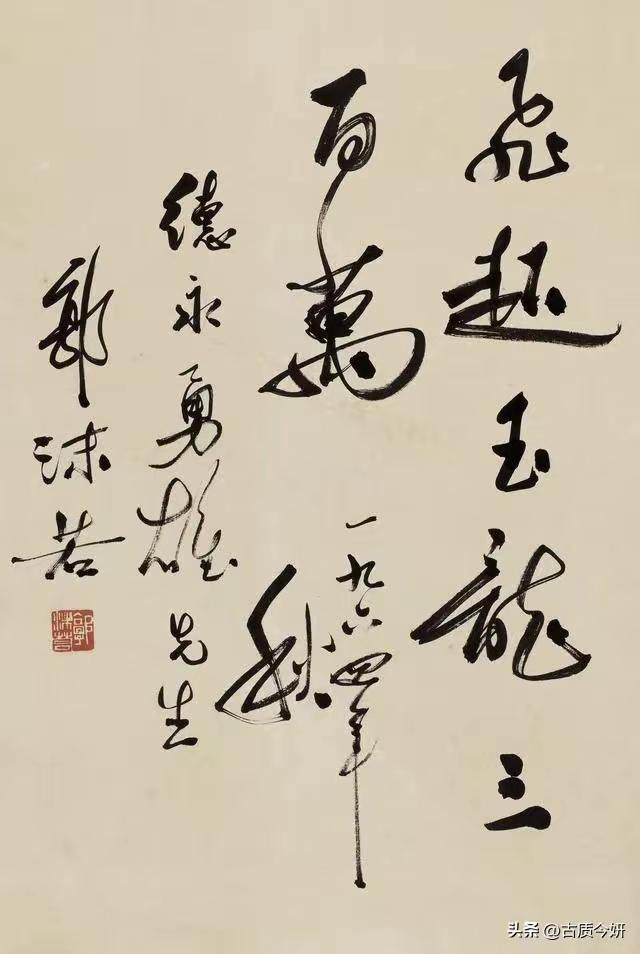 飛起玉龍三
百萬
一九六四年
秋
德永勇雄先生
郭沫若
郭沫若
头条 @古质今妍